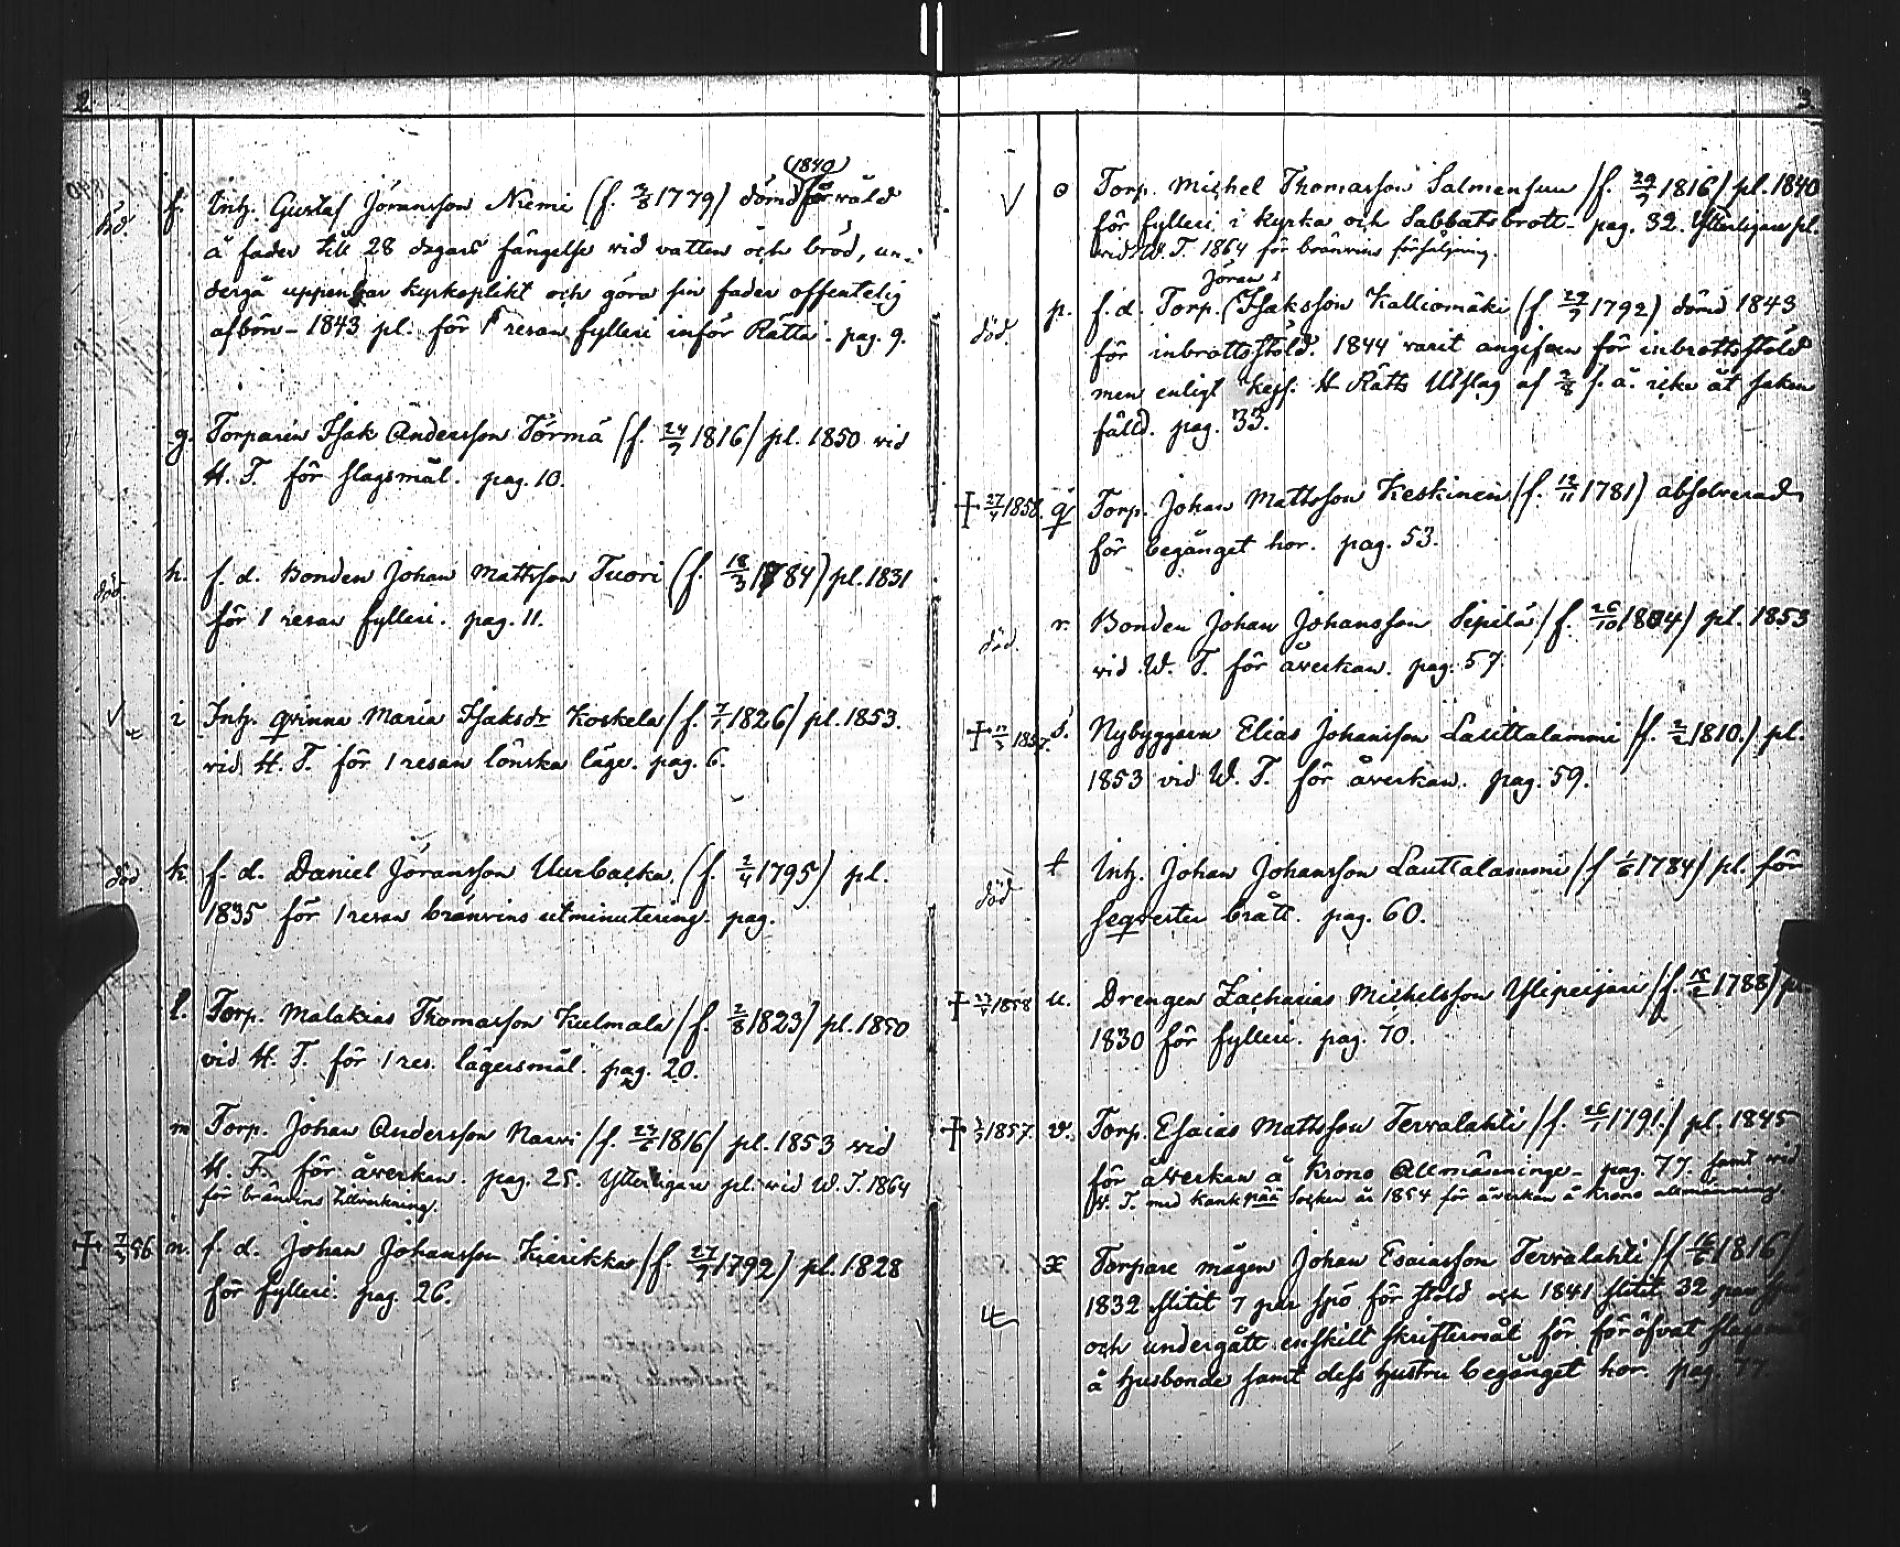 2
(1840)
död. f. Inh. Gustaf Jöransson Niemi (f. 3/8 1779) dömd för våld
å fader till 28 dagars fängelse vid vatten och bröd, un-
dergå uppenbar kyrkoplikt och göra sin fader offentelig
afbön - 1843 pl. för 1 resan fylleri inför Rätta. pag. 9.
g. Torparen Isak Andersson Törmä (f. 24/7 1816) pl. 1850 vid
H. T. för slagsmål. pag. 10.
död. h. f. d. Bonden Johan Mattsson Tuori (f. 18/3 1784) pl. 1831
för 1 resan fylleri. pag. 11.
i Inh. qvinna Maria Isaksdr Koskela (f. 7/1 1826) pl. 1853.
vid H. T. för 1 resan lönska läge. pag. 6.
död. k. f. d. Daniel Jöransson Uurbacka, (f. 2/4 1795) pl.
1835 för 1 resan bränvins utminutering. pag.
l. Torp. Malakias Thomasson Kulmala (f. 2/8 1823) pl. 1850
vid H. T. för 1 res. lägersmål. pag. 20.
m Torp. Johan Andersson Narvi (f. 23/6 1816) pl. 1853 vid
H. T. för åverkan. pag. 25. Ytterligare pl. vid W. T. 1864
för bränvins tillverkning.
+ 7/3 56 n. f. d. Johan Johansson Kierikka (f. 27/7 1792) pl. 1828
för fylleri. pag. 26.
3
o Torp. Michel Thomasson Salmensuu (f. 29/7 1816) pl. 1840
för fylleri i kyrka och Sabbatsbrott - pag. 32. Ytterligare pl.
vid W. T. 1864 för bränvins försäljning.
Jöran
död. p. f. d. Torp. Isaksson Kalliomäki (f. 29/7 1792) dömd 1843
för inbrottsstöld. 1844 varit angifven för inbrottsstöld
men enligt Kejs. H Rätts Utslag af 2/8 s. å. icke åt saken
fälld. pag. 33.
+ 27/4 1858. q Torp. Johan Mattsson Keskinen (f. 12/11 1781) absolverad
för begånget hor. pag. 53.
död. r. Bonden Johan Johansson Sepilä (f. 26/10 1804) pl. 1853
vid W. T. för åverkan. pag. 57.
+ 1857. s. Nybyggaren Elias Johansson Lauttalammi (f. 2/2 1810.) pl.
1853 vid W. T. för åverkan. pag. 59.
död t Inh. Johan Johansson Lauttalammi (f 1/6 1784) pl. för
seqvester brått. pag. 60.
+ 1858 u. Drengen Zacharias Michelsson Ylipeijari (f. 1788)
1830 för fylleri. pag. 70.
+ 1857. v. Torp. Esaias Mattsson Tervalahti (f. 26/1 1791.) pl. 1845
för åverkan å Krono Allmänninge - pag. 77. samt vid
H. T. med Kankpää Socken år 1854 för åverkan å Krono allmänning.
x Torpare mågen Johan Esaiasson Tervalahti (f 16/6 1816)
1832 slitit 7 par spö för stöld och 1841 slitit 32 par
och undergått enskilt skriftermål för föröfvat
å husbonde samt dess hustru begånget hor. pag. 77